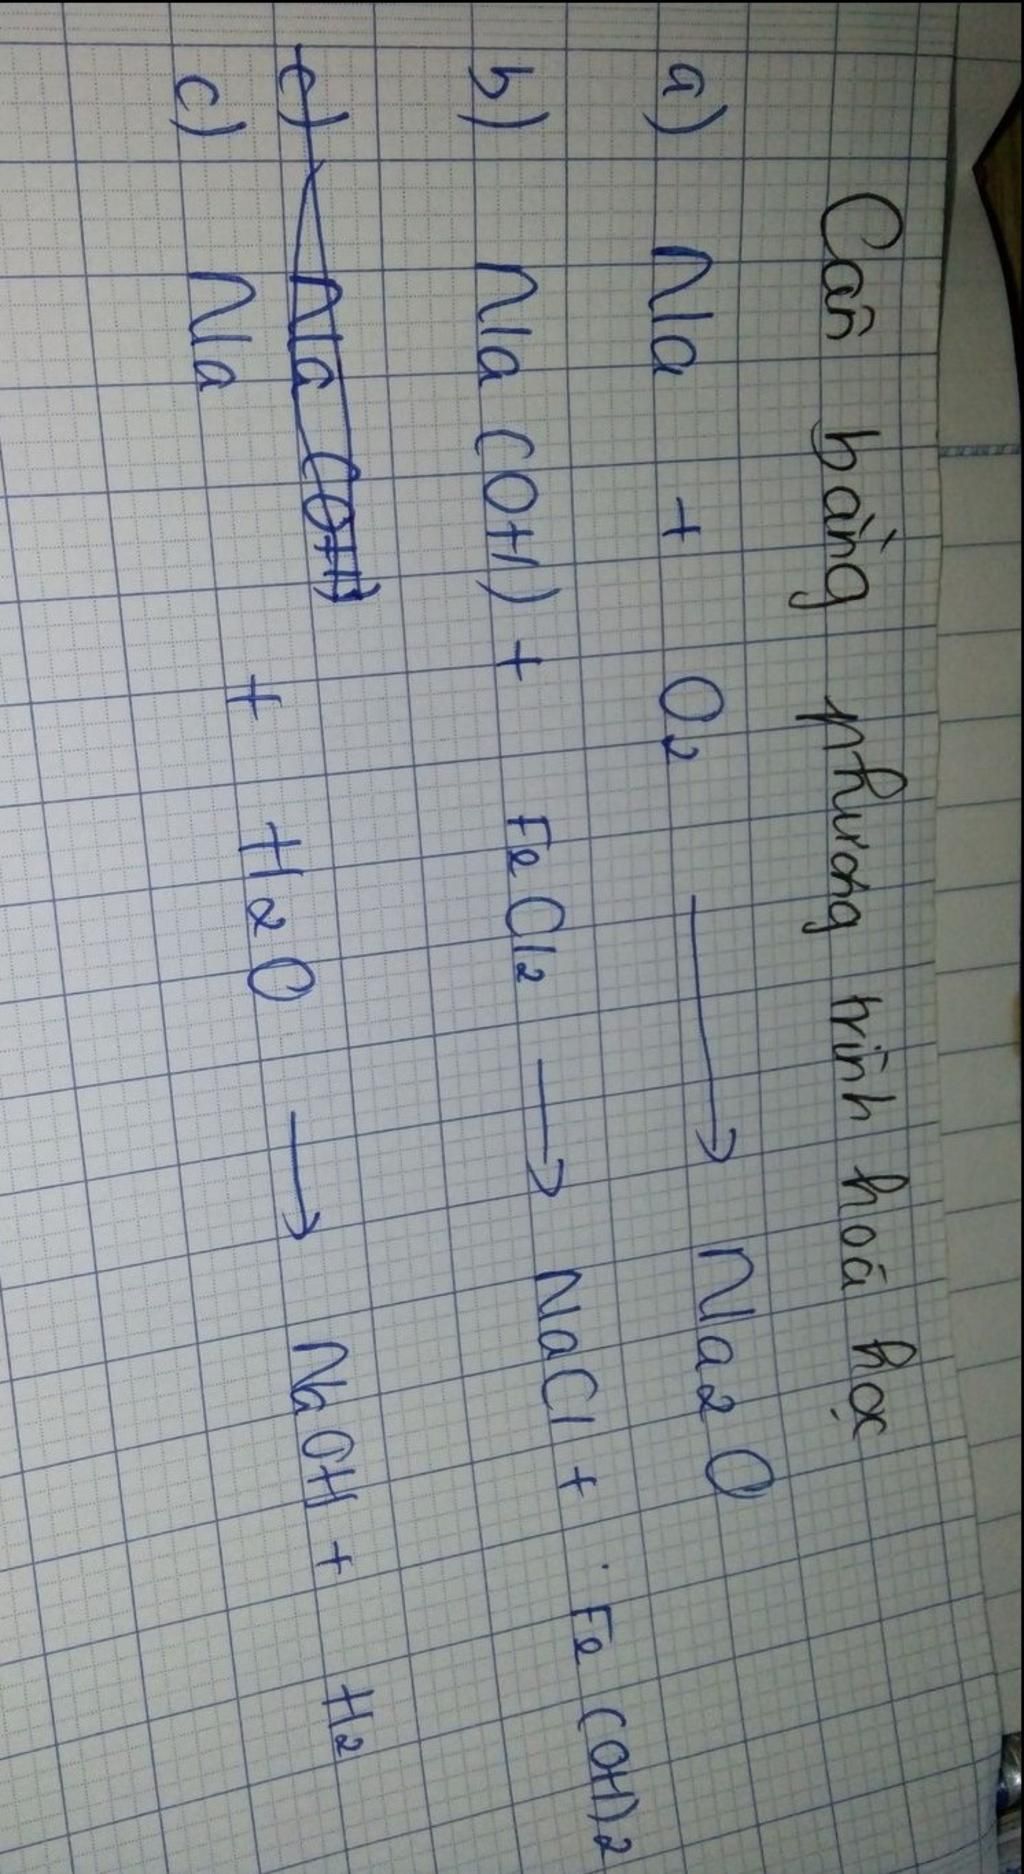 Cân bằng phương trình hoá học
a) Na + O2 → Na2O
b) Na(OH) + FeCl2 → NaCl + Fe(OH)2
c) Na(OH)
c) Na + H2O → NaOH + H2